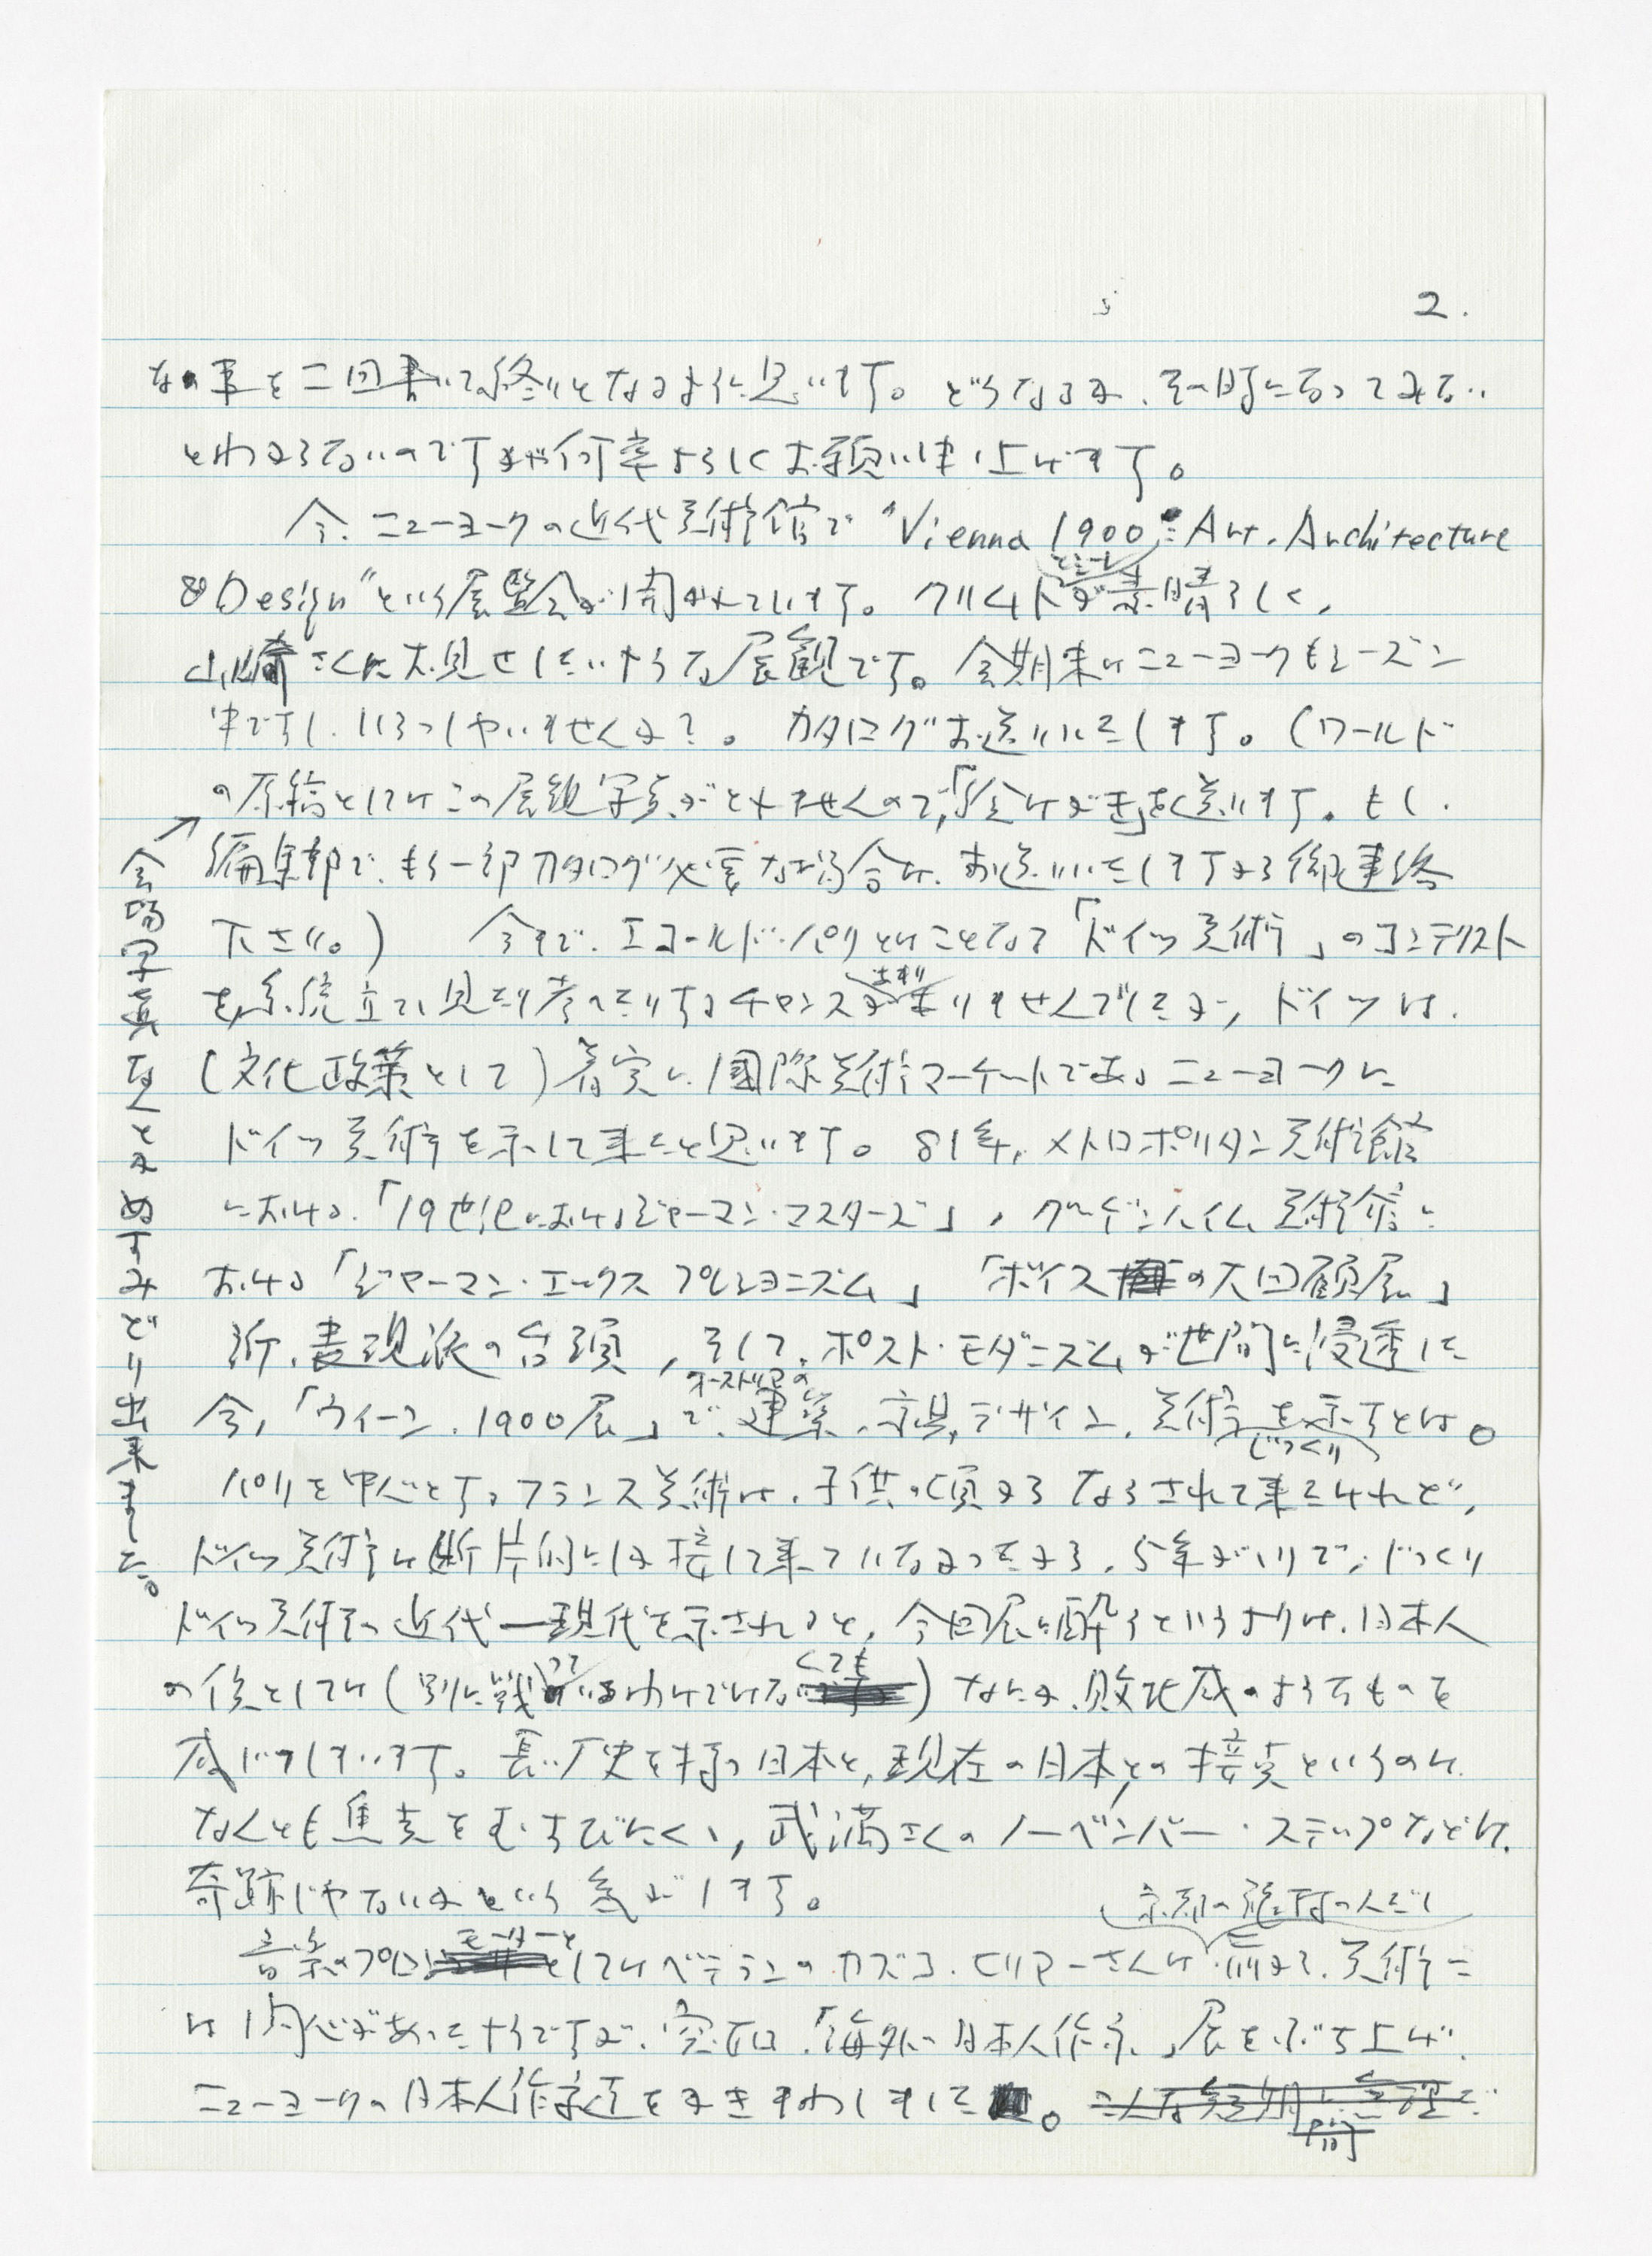 2.
なの事を二回書いて終りとなるように思います。どうなるか、その時になってみない
とわからないのですが何卒よろしくお願い申し上げます。
今、ニューヨークの近代美術館で "Vienna 1900 : Art. Architecture
& Design" という展覧会が開かれています。クリムトが素晴らしく、
山崎さんにお見せしたいような展観です。会期末はニューヨークもシーズン
中ですし、いらっしゃいませんか?。カタログお送りいたします。(ワールド
の原稿としてはこの展観写真がとれませんので、「絵はがき」を送ります。もし、
編集部で、もう一部カタログ必要な場合は、お送りいたしますから御連絡
下さい。) 今まで、エコールド・パリとはことなって「ドイツ美術」のコンテクスト
を、系統立てて見たり考えたりするチャンスがあまりありませんでしたが、ドイツは、
(文化政策として) 着実に、国際美術マーケットであるニューヨークに
ドイツ美術を示して来たと思います。81年、メトロポリタン美術館
における、「19世紀におけるジャーマン・マスターズ」、グーゲンハイム美術館に
おける「ジャーマン・エックスプレショニズム」「ボイスの大回顧展」
新、表現派の台頭、そして、ポスト・モダニズムが世間に浸透した
今、「ウィーン.1900展」で、オーストリアの建築、家具、デザイン、美術をじっくり示すとは。
パリを中心とするフランス美術は、子供の頃からならされて来たけれど、
ドイツ美術は断片的にしか接して来ていなかったから、5年がかりで、じっくり
ドイツ美術の近代―現代を示されると、今回展に酔うというよりは、日本人
の僕としては (別に戦っているわけではなくても) なにか、敗北感のようなものを
感じてしまいます。長い歴史を持つ日本と、現在の日本との接点というのは
なんとも焦点をむすびにくく、武満さんのノーベンバー・ステップなどは、
奇跡じゃないかという気がします。
音楽のプロモーターとしてはベテランのカズコ・ヒリヤーさんは 前から、美術に
は関心があったようですが、突如、「海外の日本人作家」展をぶち上げ、
ニューヨークの日本人作家達をかきまわしました。
会場写真なんとかぬすみどり出来ました。